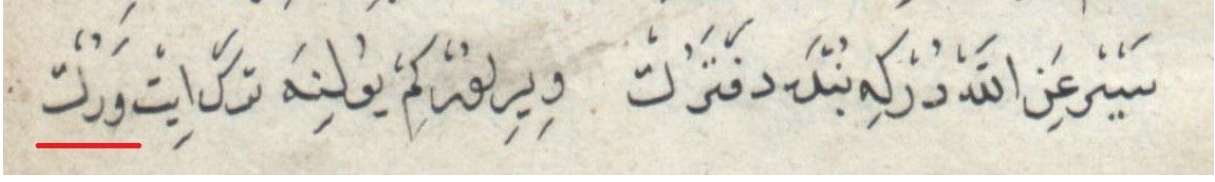 سَيْر عَنِ اللّٰه دُرْكِه بُنْدَه دفتَرُ لتْ وِيرِلورْ كِمْ يولِنَه ترك ايتْ وَرَُلتْ